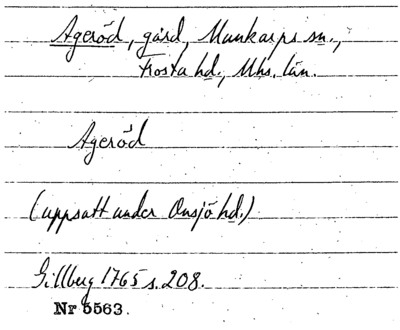 Ageröd, gård, Munkarps sn.,
Frosta hd., Mhs. län.
Ageröd
(uppsatt under Onsjö hd.)
Gillberg 1765 s. 208.
Nr 5563.